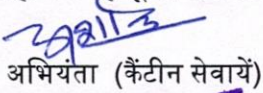 अभियंता (कैंटीन सेवायें)